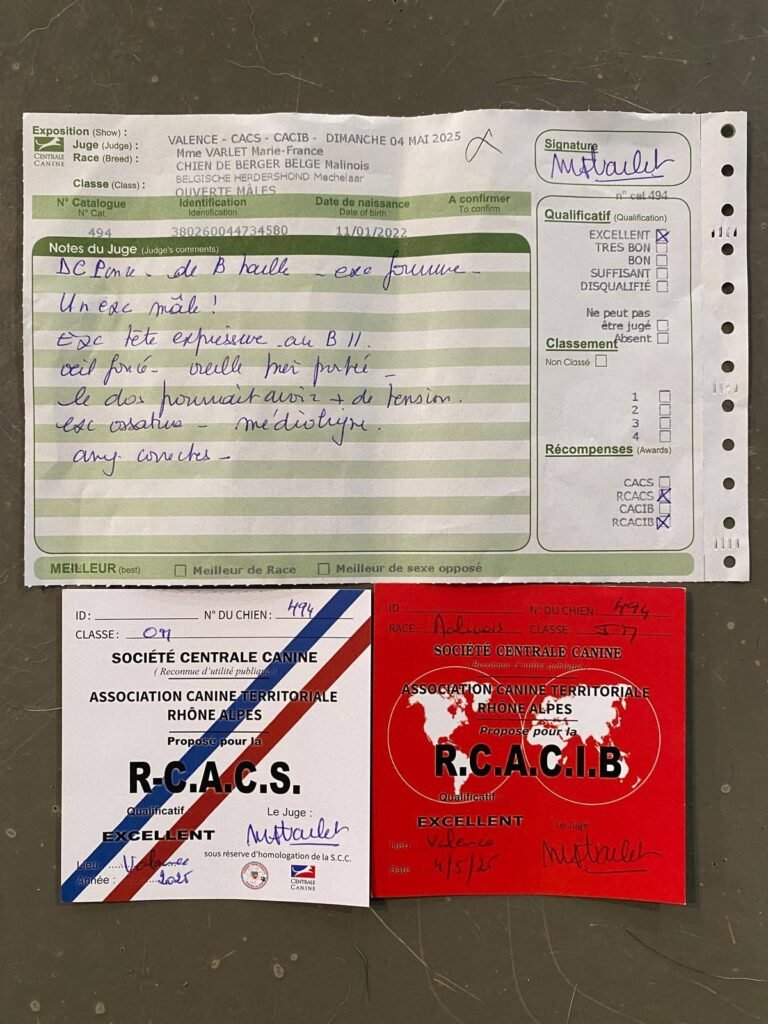 Exposition (Show) : VALENCE - CACS - CACIB - DIMANCHE 04 MAI 2025
Juge (Judge) : Mme VARLET Marie-France
Race (Breed) : CHIEN DE BERGER BELGE Malinois
BELGISCHE HERDERSHOND Mechelaar
Classe (Class) : OUVERTE MÂLES
CENTRALE
CANINE
Signature
n° cat 494
N° Catalogue Identification Date de naissance A confirmer
N° Cat Identification Date of birth To confirm
494 380260044734580 11/01/2022
Notes du Juge (Judge's comments)
de B taille - exc
Un exc mâle !
Exc tête expressive au B
oeil foncé - oreille portée -
le dos pourrait avoir + de tension.
exc ossature - médioligne.
ang correctes -
Qualificatif (Qualification)
EXCELLENT
TRES BON
BON
SUFFISANT
DISQUALIFIÉ
Ne peut pas
être jugé
Absent
Classement
Non Classé
1
2
3
4
Récompenses (Awards)
CACS
RCACS
CACIB
RCACIB
MEILLEUR (best) Meilleur de Race Meilleur de sexe opposé
ID: N° DU CHIEN : 494
CLASSE : OM
SOCIÉTÉ CENTRALE CANINE
( Reconnue d'utilité publique )
ASSOCIATION CANINE TERRITORIALE
RHÔNE ALPES
Proposé pour la
R-C.A.C.S.
Qualificatif : Le Juge :
EXCELLENT
sous réserve d'homologation de la S.C.C.
Lieu : Valence
Année : 2025
CENTRALE
CANINE
ID : N° DU CHIEN : 494
RACE : Malinois CLASSE :
SOCIÉTÉ CENTRALE CANINE
(Reconnue d'utilité publique)
ASSOCIATION CANINE TERRITORIALE
RHÔNE ALPES
Proposé pour la
R.C.A.C.I.B
Qualificatif :
EXCELLENT
Le Juge :
Lieu Valence
Date 4/5/25